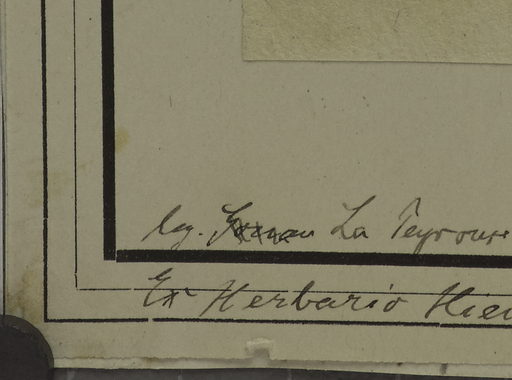 leg. La Peyrouse
Ex Herbario